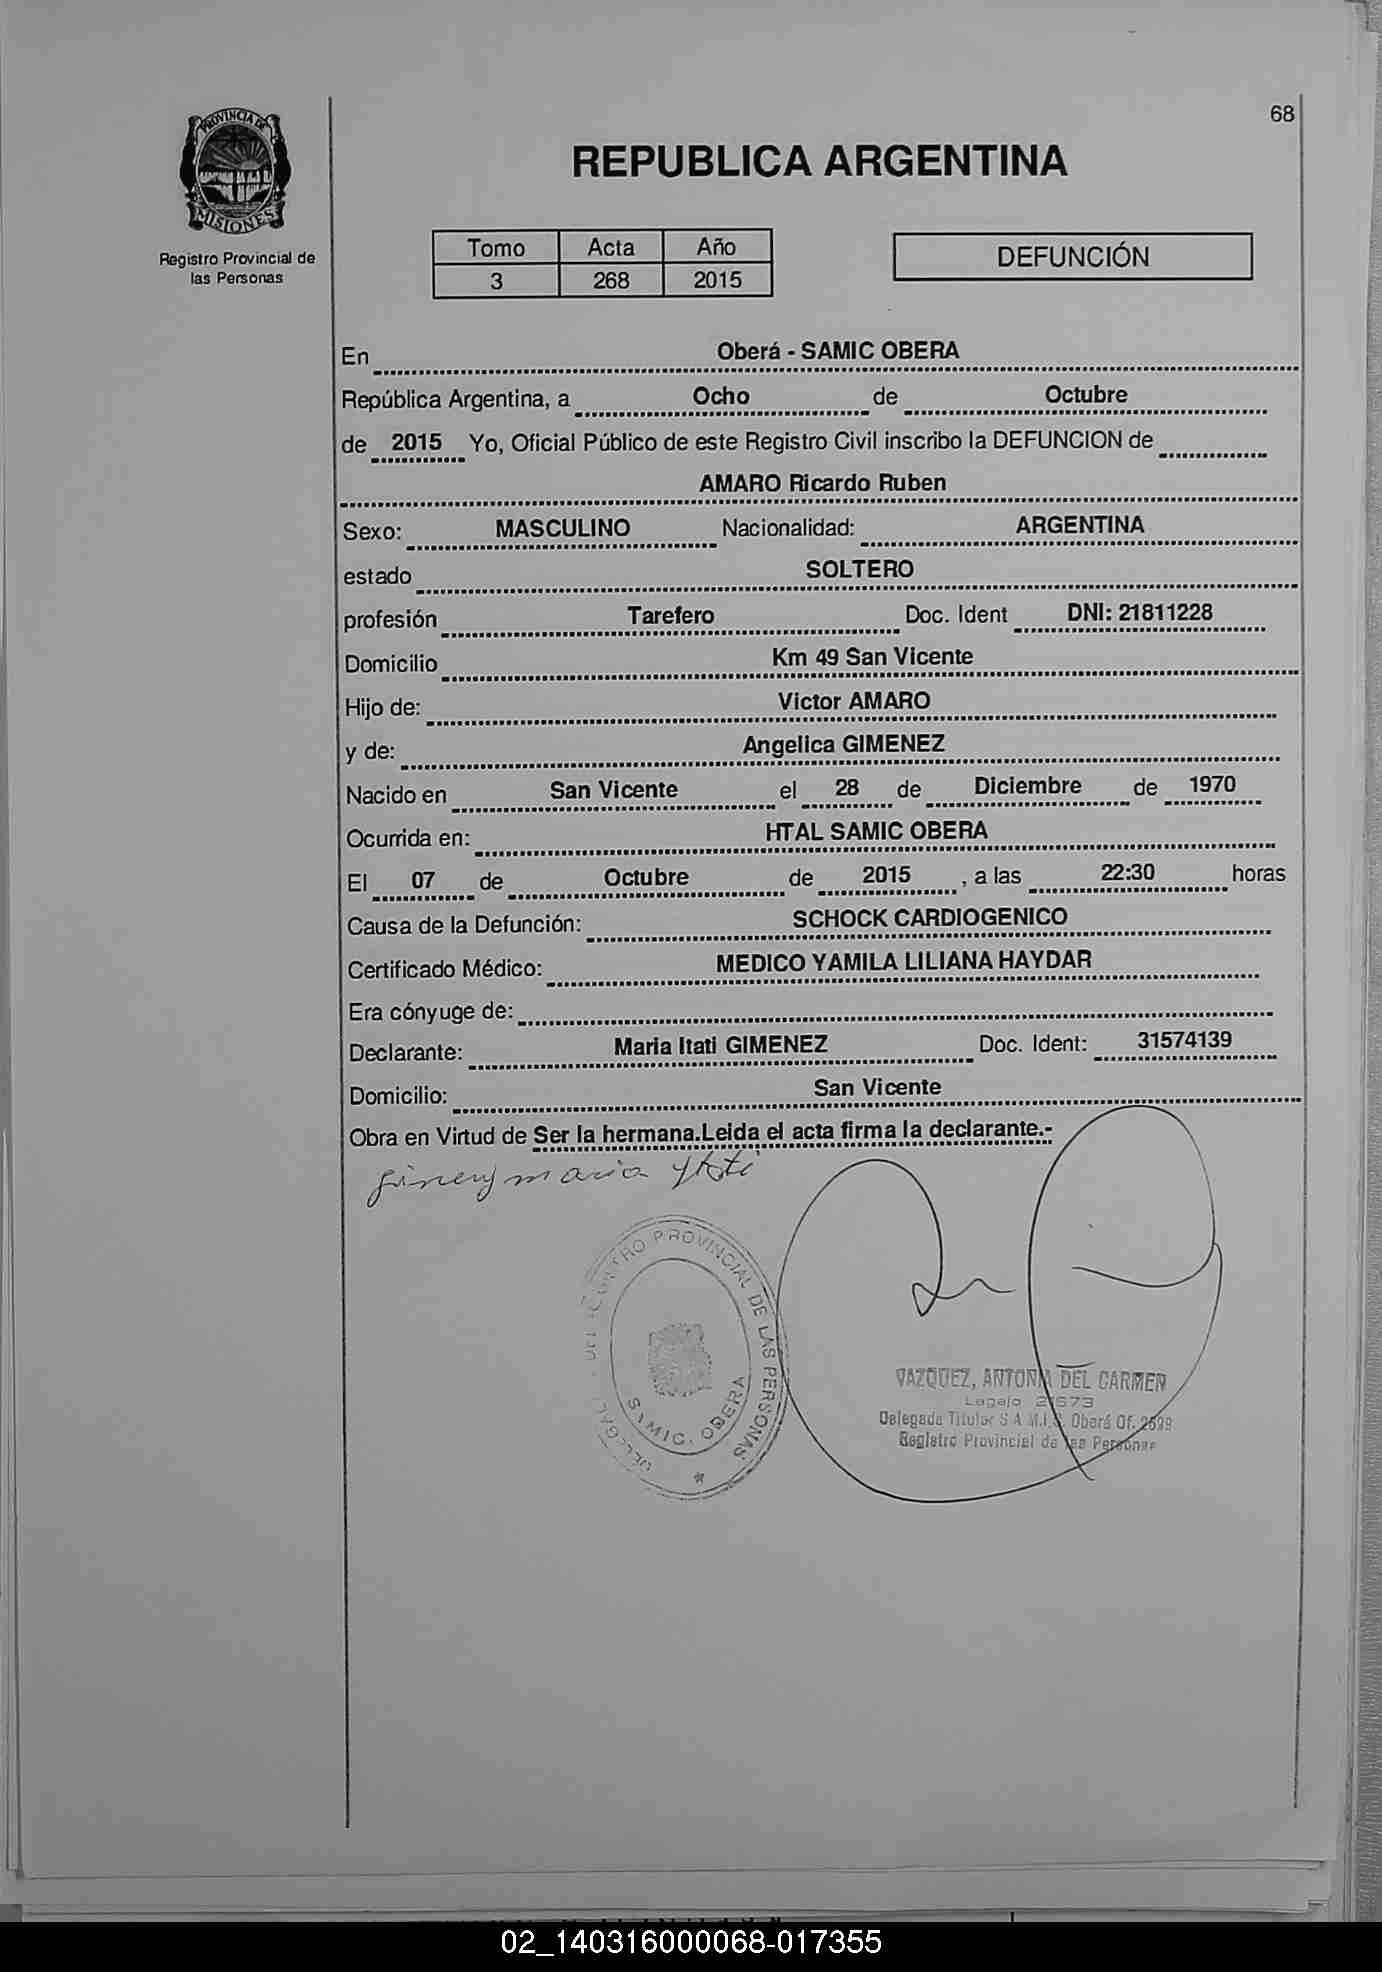 68
PROVINCIA DE
MISIONES
Registro Provincial de
las Personas
REPUBLICA ARGENTINA
Tomo Acta Año
3 268 2015
DEFUNCIÓN
En Oberá - SAMIC OBERA
República Argentina, a Ocho de Octubre
de 2015 Yo, Oficial Público de este Registro Civil inscribo la DEFUNCION de
AMARO Ricardo Ruben
Sexo: MASCULINO Nacionalidad: ARGENTINA
estado SOLTERO
profesión Tarefero Doc. Ident DNI: 21811228
Domicilio Km 49 San Vicente
Hijo de: Victor AMARO
y de: Angelica GIMENEZ
Nacido en San Vicente el 28 de Diciembre de 1970
Ocurrida en: HTAL SAMIC OBERA
El 07 de Octubre de 2015 , a las 22:30 horas
Causa de la Defunción: SCHOCK CARDIOGENICO
Certificado Médico: MEDICO YAMILA LILIANA HAYDAR
Era cónyuge de:
Declarante: Maria Itati GIMENEZ Doc. Ident: 31574139
Domicilio: San Vicente
Obra en Virtud de Ser la hermana.Leida el acta firma la declarante.-
maria
PROVINCIAL DE LAS PERSONAS
SAMIC. OBERA
VAZQUEZ, ANTONIA DEL CARMEN
Legajo
Delegada Titular S.A.M.I.C. Oberá Of.
Registro Provincial de las Personas
02_140316000068-017355